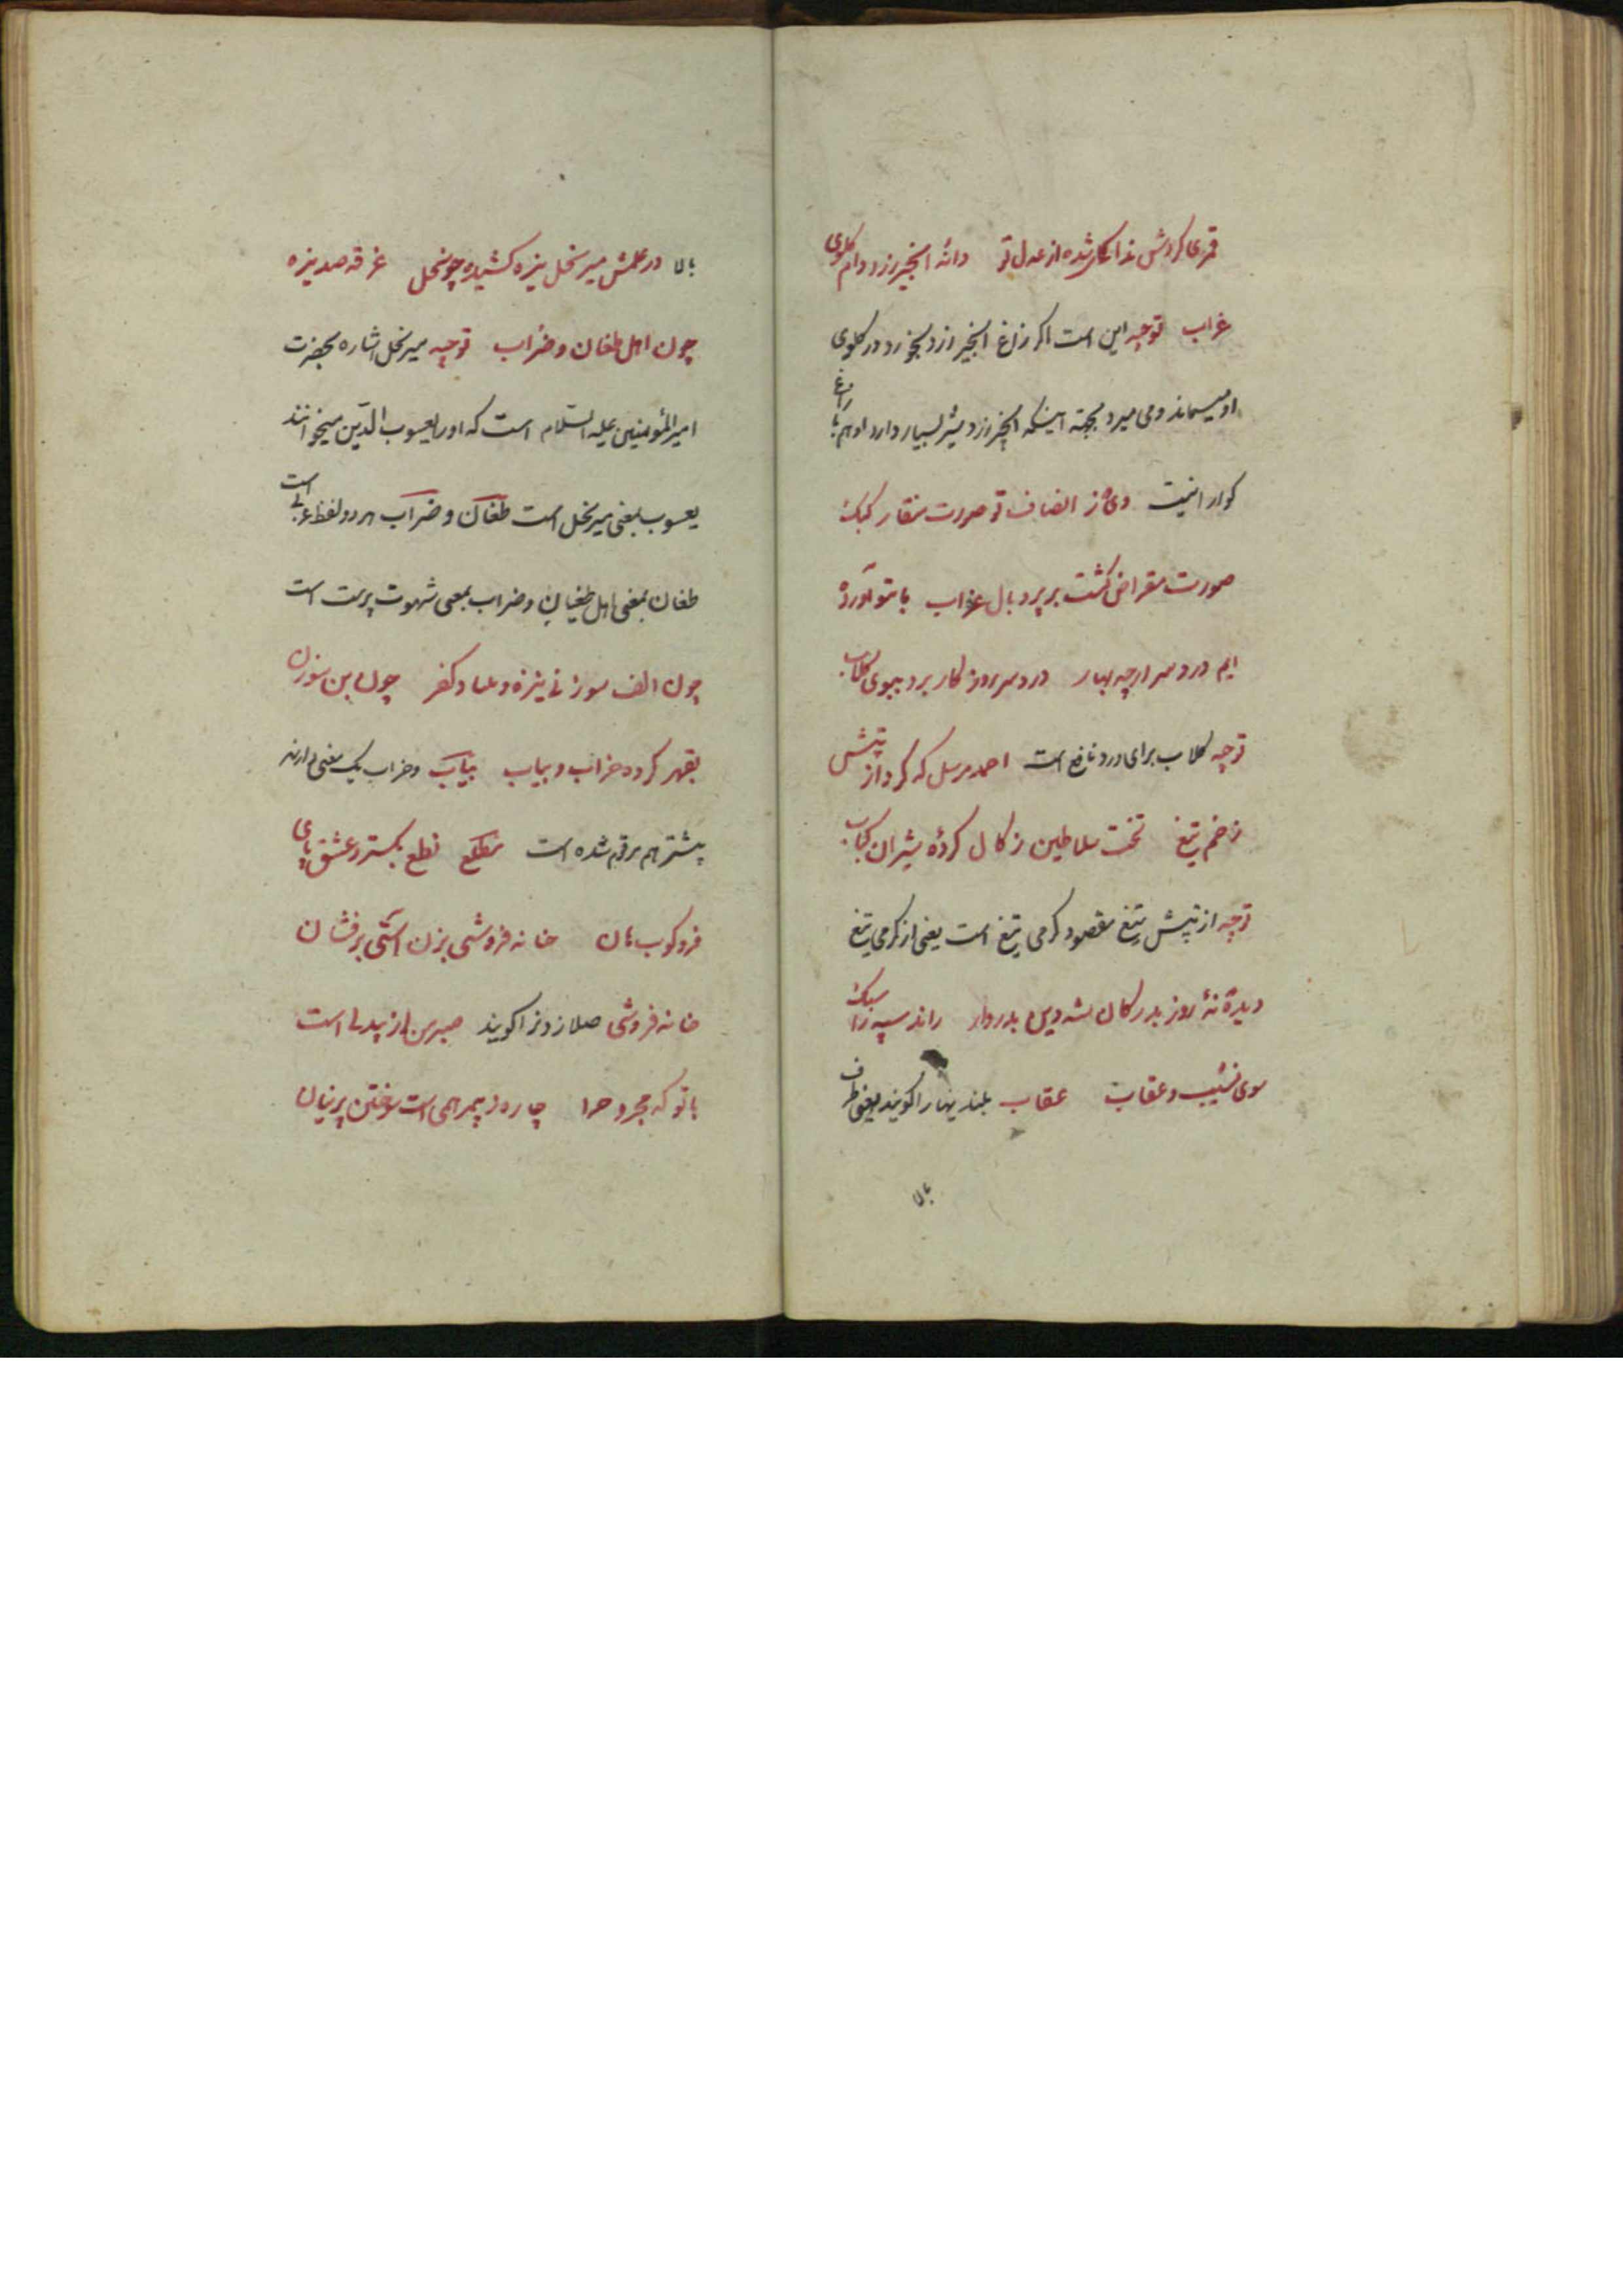 قمری کردش ندا کای شده از عدل تو دانه انجیر رز دام کلوی
غراب توجیه این است اکر زاغ انجیر از درخت رز بخورد در کلوی
او میماند و می میرد بجهته اینکه انجیر زرد شیر بسیار دارد او بهم زاغ را
کوارا نیست وی ز انصاف تو صورت منقار کبک
صورت مقراض کشت بر پر و بال غراب با تو آورده
ایم درد سر ارچه بهار درد سر روز کار برد ببوی کلاب
توجیه کلاب برای درد نافع است احمد مرسل که کرد از تپش
زخم تیغ تخت سلاطین زکال کردهٔ شیران کباب
توجیه از تپش تیغ مقصود کرمی تیغ است یعنی از کرمی تیغ
دیدهٔ نهٔ روز بدر کان شه دین بدروار راند سپه را سبک
سوی نشیب و عقاب عقاب بلندیها را کویند یعنی طرف
بالا
بالا در علمش میر نحل نیزه کشیده چو نخل غرقه صد نیزه
چون اهل طغان و ضراب توجیه میر نحل اشاره بحضرت
امیرالمؤمنین علیه السّلام است که او را یعسوب الدّین میخوانند
یعسوب بمعنی میر نحل است طغان و ضراب هر دو لفظ عربی است
طغان بمعنی اهل طغیان و ضراب بمعنی شهوت پرست است
چون الف سوزنی نیزه و بنیاد کفر چون بن سوزن
بقهر کرده خراب و یباب یباب و خراب یک معنی دارند
پیشتر هم مرقوم شده است مطلع نطع بکستر و عشق پای
فرو کوب هان خانه فروشی بزن آستنی برفشان
خانه فروشی صلا زدن را کویند صبر من از بیدلی است
با تو که مجروح را چاره ز بی مرهمی است سوختن پرنیان